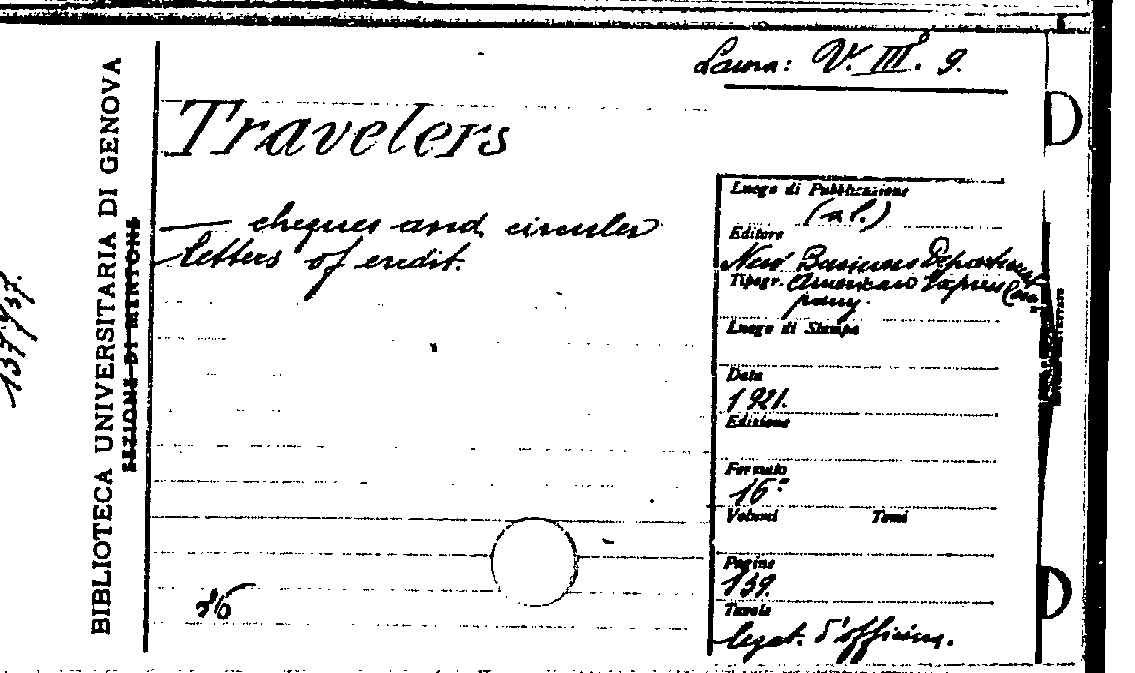 Laura: V. III. 9.
Travelers
— cheques and circular
letters of credit.
BIBLIOTECA UNIVERSITARIA DI GENOVA
SEZIONE DI MENTONE
Luogo di Pubblicazione
Editore
New Business Department
Tipogr. American Express Com
pany.
Luogo di Stampa
Data
1921.
Edizione
Formato
16°
Volumi Tomi
Pagine
139.
Tavole
legat. d'officina.